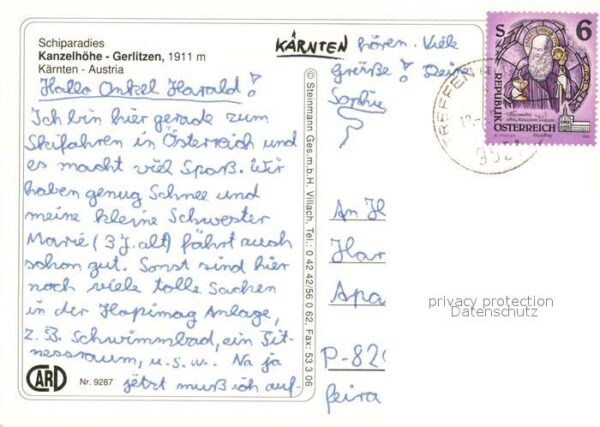 Schiparadies
Kanzelhöhe - Gerlitzen, 1911 m
Kärnten - Austria
Hallo Onkel Harald!
Ich bin hier gerade zum
Skifahren in Österreich und
es macht viel Spaß. Wir
haben genug Schnee und
meine kleine Schwester
Marie (3 J. alt) fährt auch
schon gut. Sonst sind hier
noch viele tolle Sachen
in der Hapimag Anlage,
z.B. Schwimmbad, ein Fit-
nessraum, u.s.w.. Na ja
jetzt muß ich auf-
CARD
Nr. 9287
© Steinmann Ges.m.b.H. Villach, Tel.: 0 42 42/56 0 62, Fax: 53 3 06
KÄRNTEN
hören. Viele
Grüße! Deine
Sophie
S 6
REPUBLIK
ÖSTERREICH
TREFFEN
An H
Har
Apa
P-82
feira
privacy protection
Datenschutz